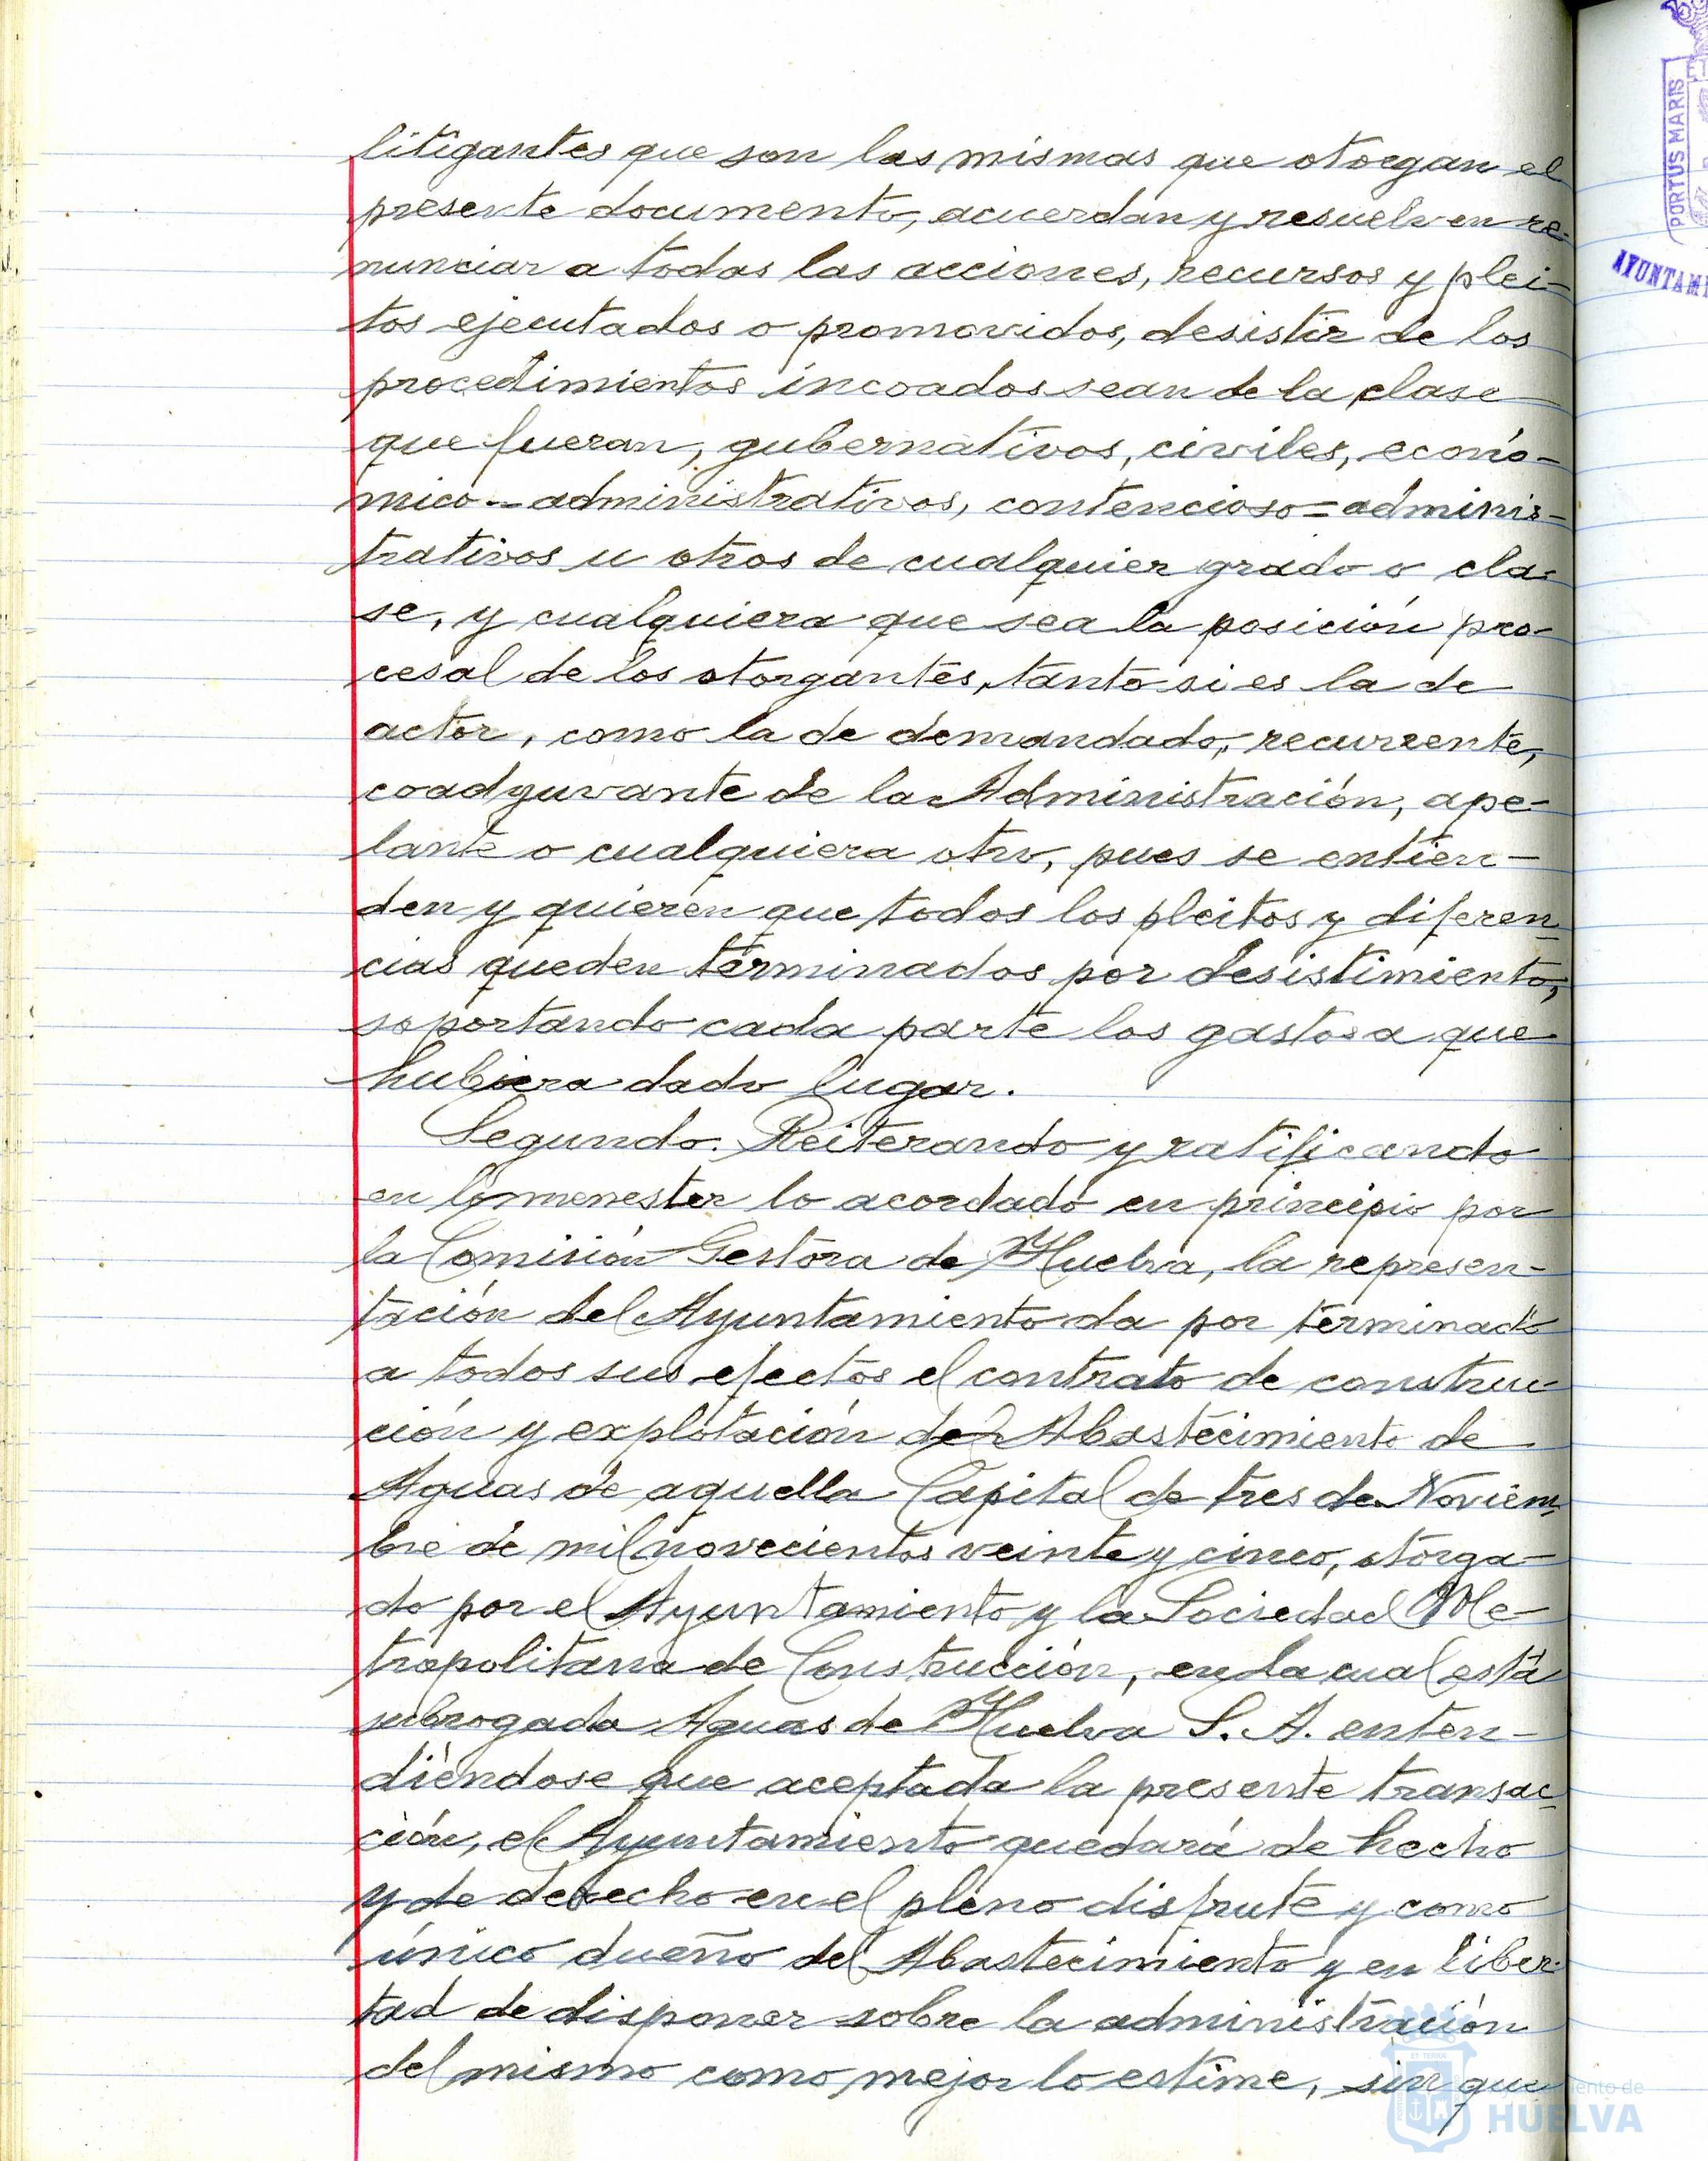 litigantes que son las mismas que otorgan el
presente documento, acuerdan y resuelven re-
nunciar a todas las acciones, recursos y plei-
tos ejecutados o promovidos, desistir de los
procedimientos incoados sean de la clase
que fueran, gubernativos, civiles, econó-
mico-administrativos, contencioso=adminis-
trativos u otros de cualquier grado o cla-
se, y cualquiera que sea la posición pro-
cesal de los otorgantes, tanto si es la de
actor, como la de demandado, recurrente,
coadyuvante de la Administración, ape-
lante o cualquiera otro, pues se entien-
den y quieren que todos los pleitos y diferen-
cias queden terminados por desistimiento,
soportando cada parte los gastos a que
hubiera dado lugar.
Segundo. Reiterando y ratificando
en lo menester lo acordado en principio por
la Comisión Gestora de Huelva, la represen-
tación del Ayuntamiento da por terminado
a todos sus efectos el contrato de construc-
ción y explotación del Abastecimiento de
Aguas de aquella Capital de tres de Noviem-
bre de mil novecientos veinte y cinco, otorga-
do por el Ayuntamiento y la Sociedad Me-
tropolitana de Construcción, en la cual está
subrogada Aguas de Huelva S. A. enten-
diéndose que aceptada la presente transac-
ción, el Ayuntamiento quedará de hecho
y de derecho en el pleno disfrute y como
único dueño del Abastecimiento y en liber-
tad de disponer sobre la administración
del mismo como mejor lo estime, sin que
PORTUS MARIS
AYUNTAMI
HUELVA